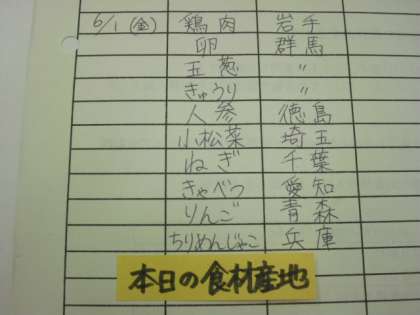 6/1 (金) 鶏肉 岩手
卵 群馬
玉葱 〃
きゅうり 〃
人参 徳島
小松菜 埼玉
ねぎ 千葉
きゃべつ 愛知
りんご 青森
ちりめんじゃこ 兵庫
本日の食材産地